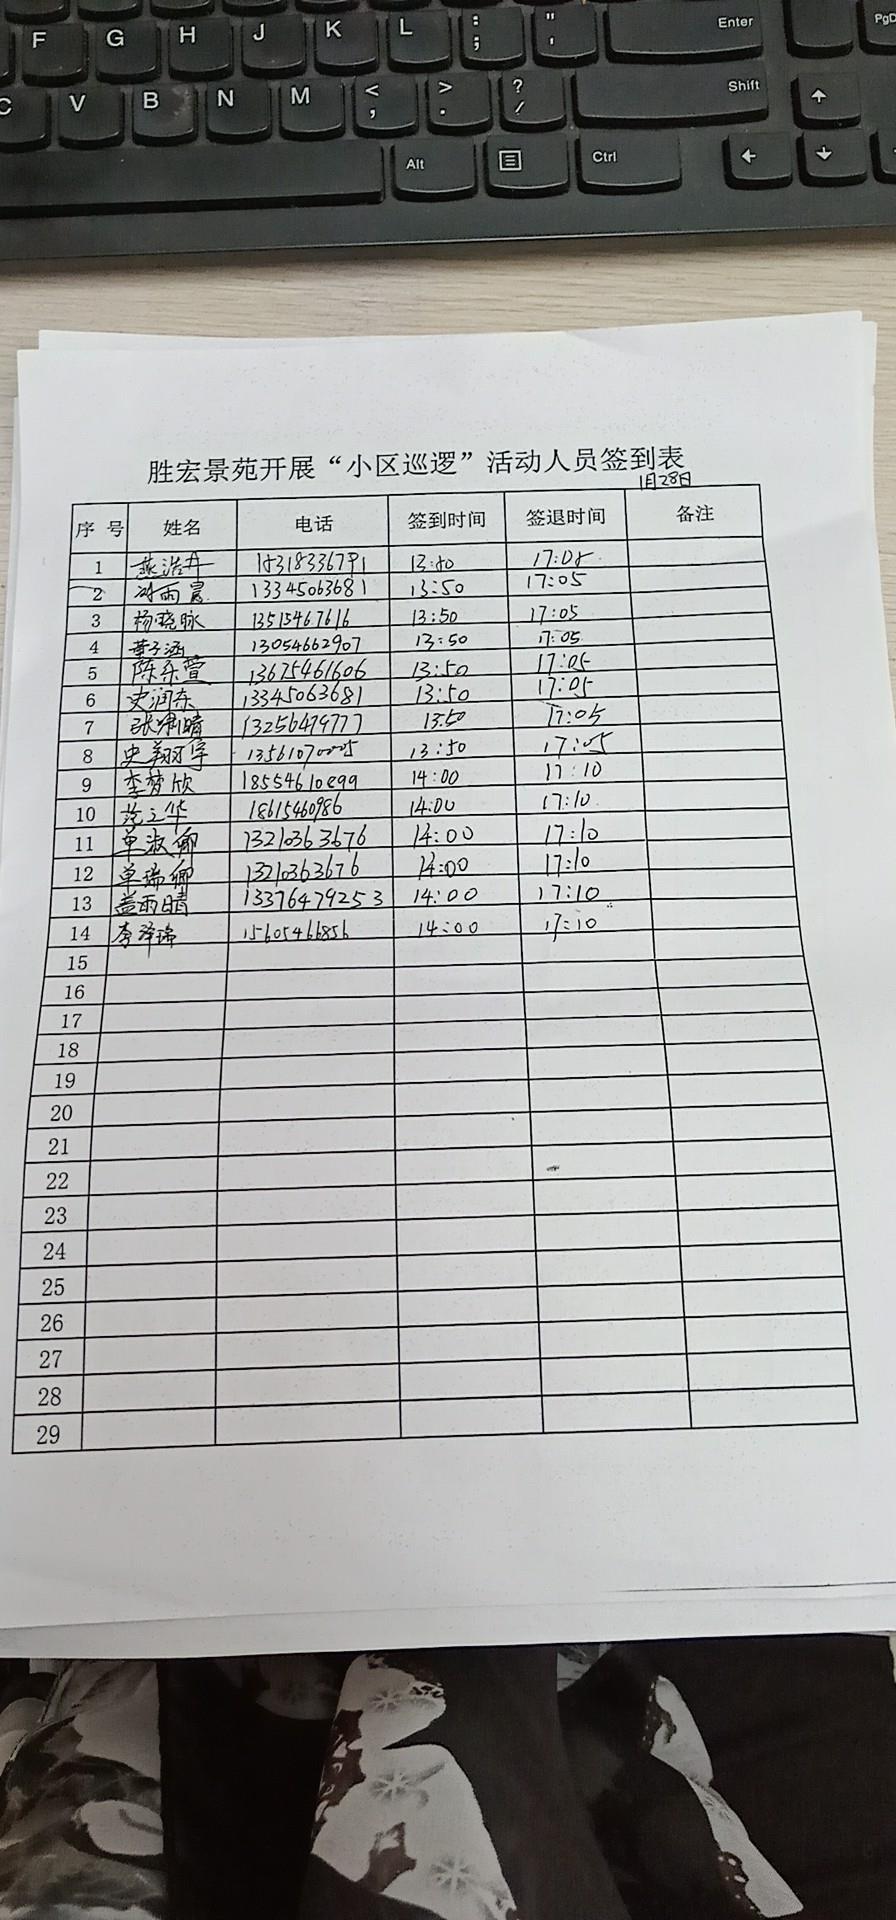 F G H J K L : ; " ' Enter PgD
C V B N M < , > . ? / Shift ↑
Alt Ctrl ← ↓
胜宏景苑开展“小区巡逻”活动人员签到表
1月28日
序号 姓名 电话 签到时间 签退时间 备注
1 燕浩丹 13:50 17:05
2 雨晨 13345063681 13:50 17:05
3 杨晓咏 13515467616 13:50 17:05
4 董子涵 13054662907 13:50 17:05
5 陈乐萱 13675461606 13:50 17:05
6 史润东 13345063681 13:50 17:05
7 张 晴 13256479777 13:50 17:05
8 史翔宇 13561070005 13:50 17:05
9 李梦欣 18554610899 14:00 17:10
10 范立华 18615460986 14:00 17:10
11 单淑卿 13210363676 14:00 17:10
12 单瑞卿 13210363676 14:00 17:10
13 盖雨晴 13376479253 14:00 17:10
14 李泽瑞 15605466856 14:00 17:10
15
16
17
18
19
20
21
22
23
24
25
26
27
28
29